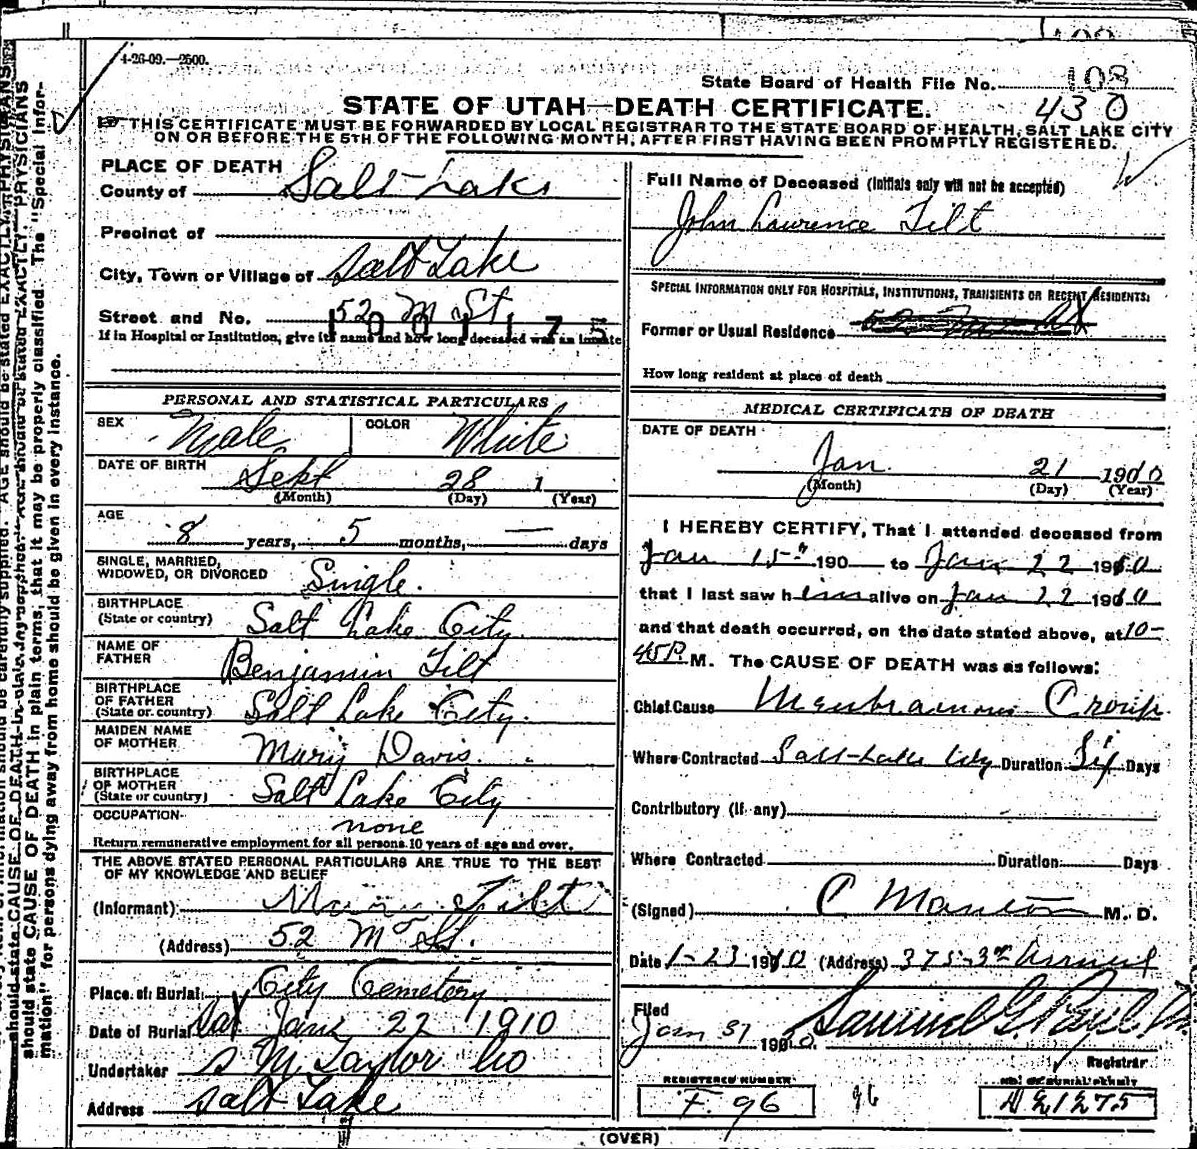 4-26-09.—2500.
State Board of Health File No. 108
430
STATE OF UTAH—DEATH CERTIFICATE.
THIS CERTIFICATE MUST BE FORWARDED BY LOCAL REGISTRAR TO THE STATE BOARD OF HEALTH, SALT LAKE CITY
ON OR BEFORE THE 5TH OF THE FOLLOWING MONTH, AFTER FIRST HAVING BEEN PROMPTLY REGISTERED.
PLACE OF DEATH
County of Salt Lake
Precinct of
City, Town or Village of Salt Lake
Street and No. 52 M St
1001175
If in Hospital or Institution, give its name and how long deceased was an inmate
Full Name of Deceased (Initials only will not be accepted)
John Lawrence Tilt
SPECIAL INFORMATION ONLY FOR HOSPITALS, INSTITUTIONS, TRANSIENTS OR RECENT RESIDENTS:
Former or Usual Residence
How long resident at place of death
PERSONAL AND STATISTICAL PARTICULARS
SEX Male COLOR White
DATE OF BIRTH Sept 28 1
(Month) (Day) (Year)
AGE 8 years, 5 months, — days
SINGLE, MARRIED,
WIDOWED, OR DIVORCED Single.
BIRTHPLACE
(State or country) Salt Lake City.
NAME OF
FATHER Benjamin Tilt
BIRTHPLACE
OF FATHER
(State or country) Salt Lake City.
MAIDEN NAME
OF MOTHER Mary Davis.
BIRTHPLACE
OF MOTHER
(State or country) Salt Lake City
OCCUPATION none
Return remunerative employment for all persons 10 years of age and over.
THE ABOVE STATED PERSONAL PARTICULARS ARE TRUE TO THE BEST
OF MY KNOWLEDGE AND BELIEF
(Informant) Tilt
(Address) 52 M St.
Place of Burial City Cemetery
Date of Burial Sat Jany 22 1910
Undertaker S M Taylor Co
Address Salt Lake
MEDICAL CERTIFICATE OF DEATH
DATE OF DEATH
Jan 21 1910
(Month) (Day) (Year)
I HEREBY CERTIFY, That I attended deceased from
Jan 15th 190 to Jan 22 1910
that I last saw him alive on Jan 22 1910
and that death occurred, on the date stated above, at 10-
45 P. M. The CAUSE OF DEATH was as follows:
Chief Cause Membranous Croup.
Where Contracted Salt-Lake City Duration Six Days
Contributory (if any)
Where Contracted Duration Days
(Signed) C M. D.
Date 1-23 1910 (Address) 375-3rd Avenue
Filed
Jan 31 1910. Samuel G. Paul
Registrar
REGISTERED NUMBER
F. 96
96
NO. OF BURIAL PERMIT
A21275
(OVER)
should state CAUSE OF DEATH in plain terms, that it may be properly classified. The "Special Infor-
mation" for persons dying away from home should be given in every instance.